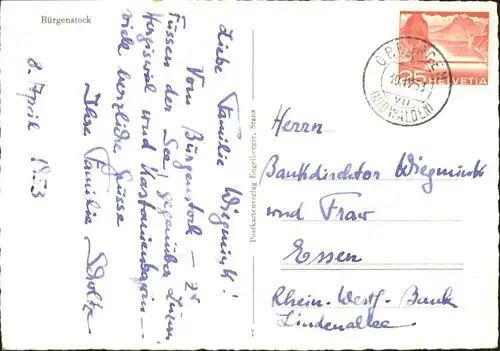 Bürgenstock
Liebe Familie Wiegmink!
Vom Bürgenstock – zu
Füssen der See, gegenüber
Hergiswil und Kastanienbaum –
viele herzliche Grüsse
Ihre Familie
8. April 1953
Postkartenverlag Engelberger, Stans
OBBÜRGEN
10.IV.53
(NIDWALDEN)
25 HELVETIA
Herrn
Bankdirektor Wiegmink
und Frau
Essen
Rhein.-Westf.-Bank
Lindenallee.